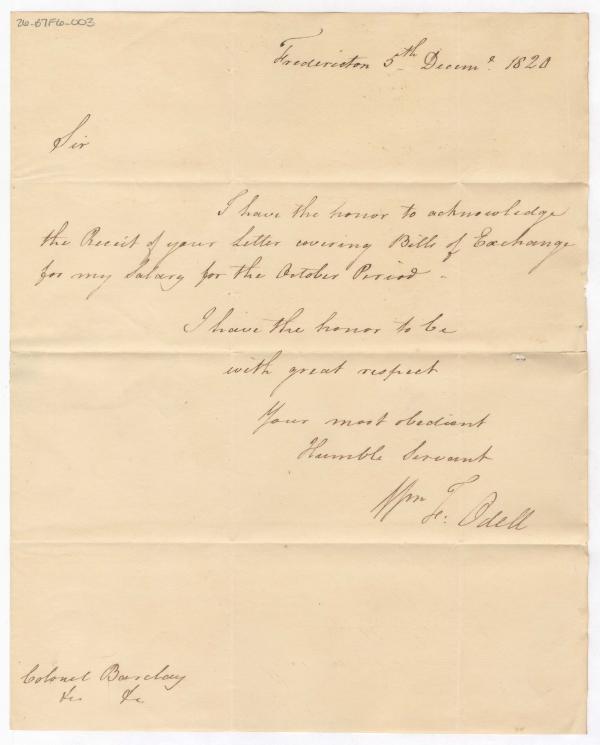 26-67F6-003
Fredericton 5th Decemr. 1820
Sir
I have the honor to acknowledge
the Receit of your Letter covering Bills of Exchange
for my Salary for the October Period -
I have the honor to be
with great respect
Your most obedient
Humble Servant
Wm F: Odell
Colonel Barclay
&c &c